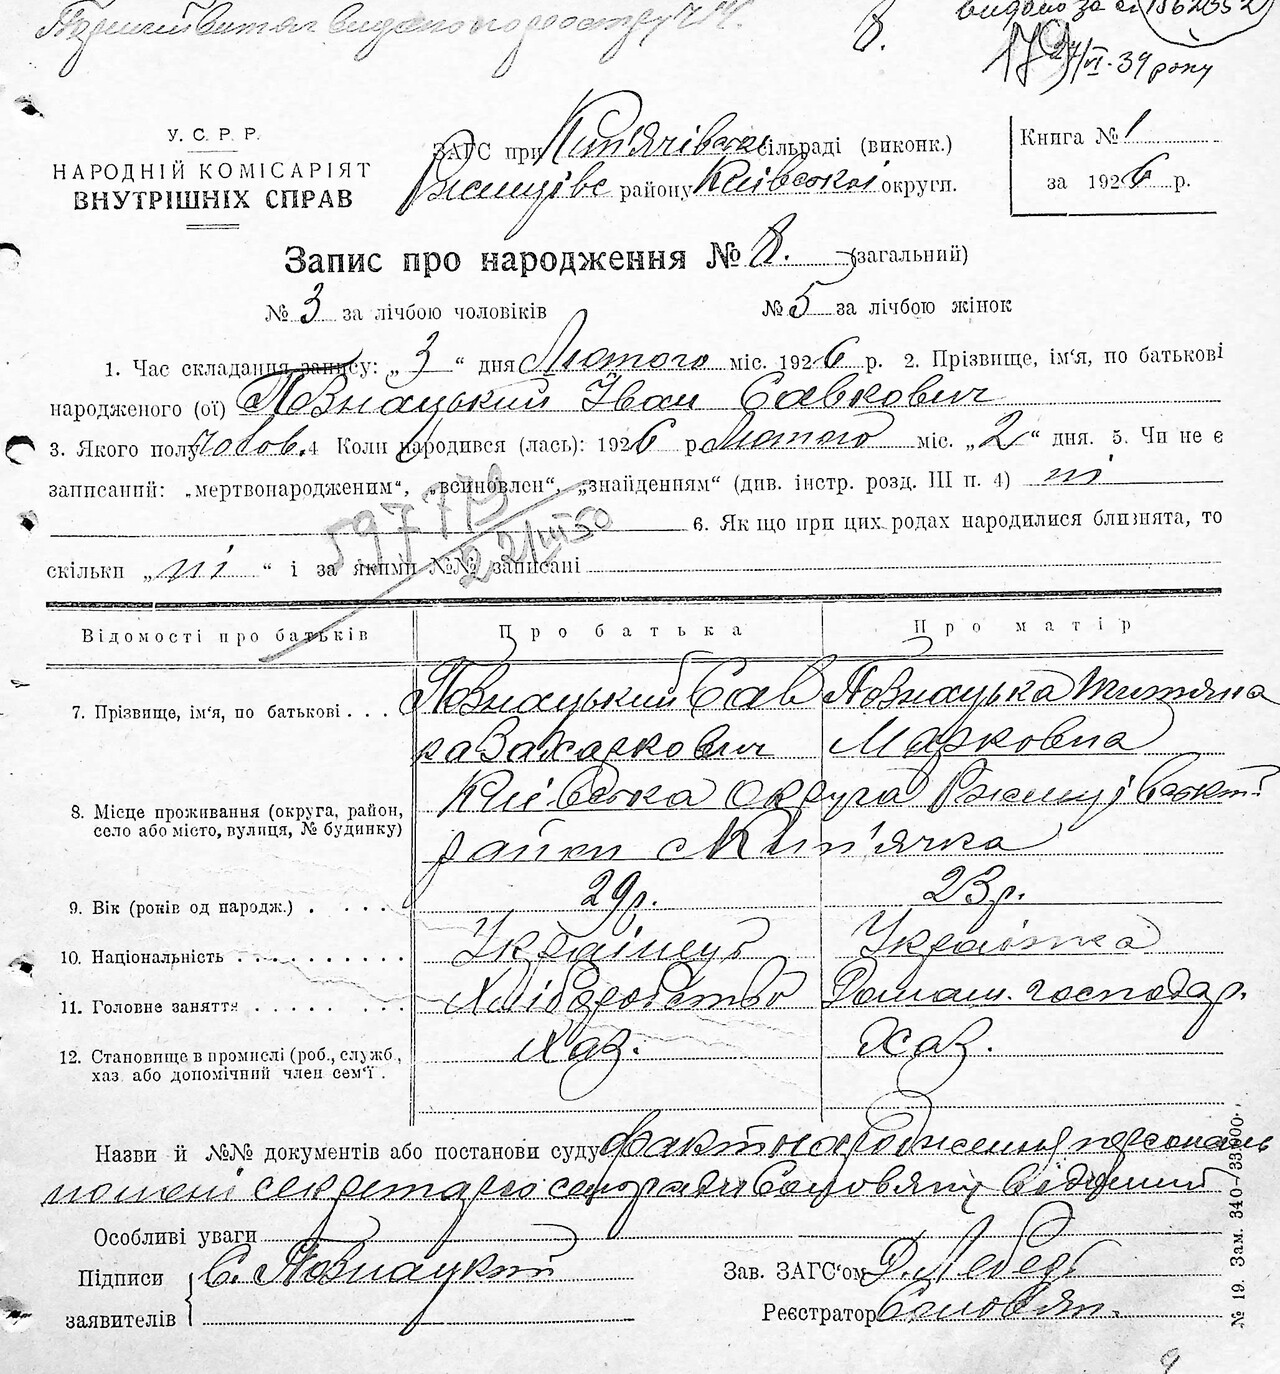 видано за
24/VI-39 року
8.
У. С. Р. Р.
НАРОДНІЙ КОМІСАРІЯТ
ВНУТРІШНІХ СПРАВ
ЗАГС при Кип'ячівськ сільраді (виконк.)
Ржищівс району Київської округи.
Книга № 1
за 1926 р.
Запис про народження № 8. (загальний)
№ 3 за лічбою чоловіків № 5 за лічбою жінок
1. Час складання запису: „ 3 “ дня Лютого міс. 1926 р. 2. Прізвище, ім‘я, по батькові
народженого (ої) Познацький Іван Савкович
3. Якого полу чолов. 4 Коли народився (лась): 1926 р. Лютого міс. „ 2 “ дня. 5. Чи не є
записаний: „мертвонародженим“, „всиновлен“, „знайденням“ (див. інстр. розд. III п. 4) ні
6. Як що при цих родах народилися близнята, то
скільки „ ні “ і за якими №№ записані
Відомості про батьків Про батька Про матір
7. Прізвище, ім‘я, по батькові . . . Познацький Сав Познацька Титяна
ка Захаркович Марковна
8. Місце проживання (округа, район,
село або місто, вулиця, № будинку)
Київська округа Ржищівськ
район с Кип'ячка
9. Вік (років од народж.) . . . . . 29р. 23р.
10. Національність . . . . . . . . . . Українець Українка
11. Головне заняття . . . . . . . . . Хліборобство Домашн. господар.
12. Становище в промислі (роб., служб.,
хаз. або допомічний член сем‘ї .
Хаз. Хаз.
Назви й №№ документів або постанови суду факт народження персональ
секретарю
Особливі уваги
Підписи
заявителів
С. Познацкий
Зав. ЗАГС‘ом Д. Лебедь
Реєстратор Соловян.
№ 19. Зам. 340-/33000